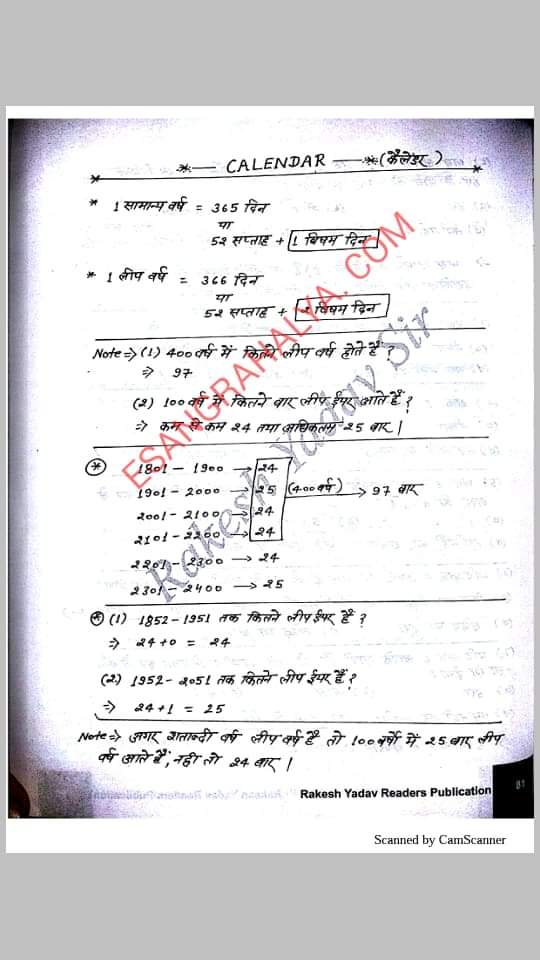 * — CALENDAR — * (कैलेंडर)
* 1 सामान्य वर्ष = 365 दिन
या
52 सप्ताह + 1 विषम दिन
* 1 लीप वर्ष = 366 दिन
या
52 सप्ताह + 2 विषम दिन
Note ⇒ (1) 400 वर्ष में कितने लीप वर्ष होते हैं ?
⇒ 97
(2) 100 वर्ष में कितने बार लीप ईयर आते हैं ?
⇒ कम से कम 24 तथा अधिकतम 25 बार |
* 1801 - 1900 → 24
1901 - 2000 → 25 (400 वर्ष) → 97 बार
2001 - 2100 → 24
2101 - 2200 → 24
2201 - 2300 → 24
2301 - 2400 → 25
* (1) 1852 - 1951 तक कितने लीप ईयर हैं ?
⇒ 24 + 0 = 24
(2) 1952 - 2051 तक कितने लीप ईयर हैं ?
⇒ 24 + 1 = 25
Note ⇒ अगर शताब्दी वर्ष लीप वर्ष है तो 100 वर्षो में 25 बार लीप
वर्ष आते हैं, नही तो 24 बार |
ESANGRAHALYA.COM
Rakesh Yadav Sir
Rakesh Yadav Readers Publication
81
Scanned by CamScanner